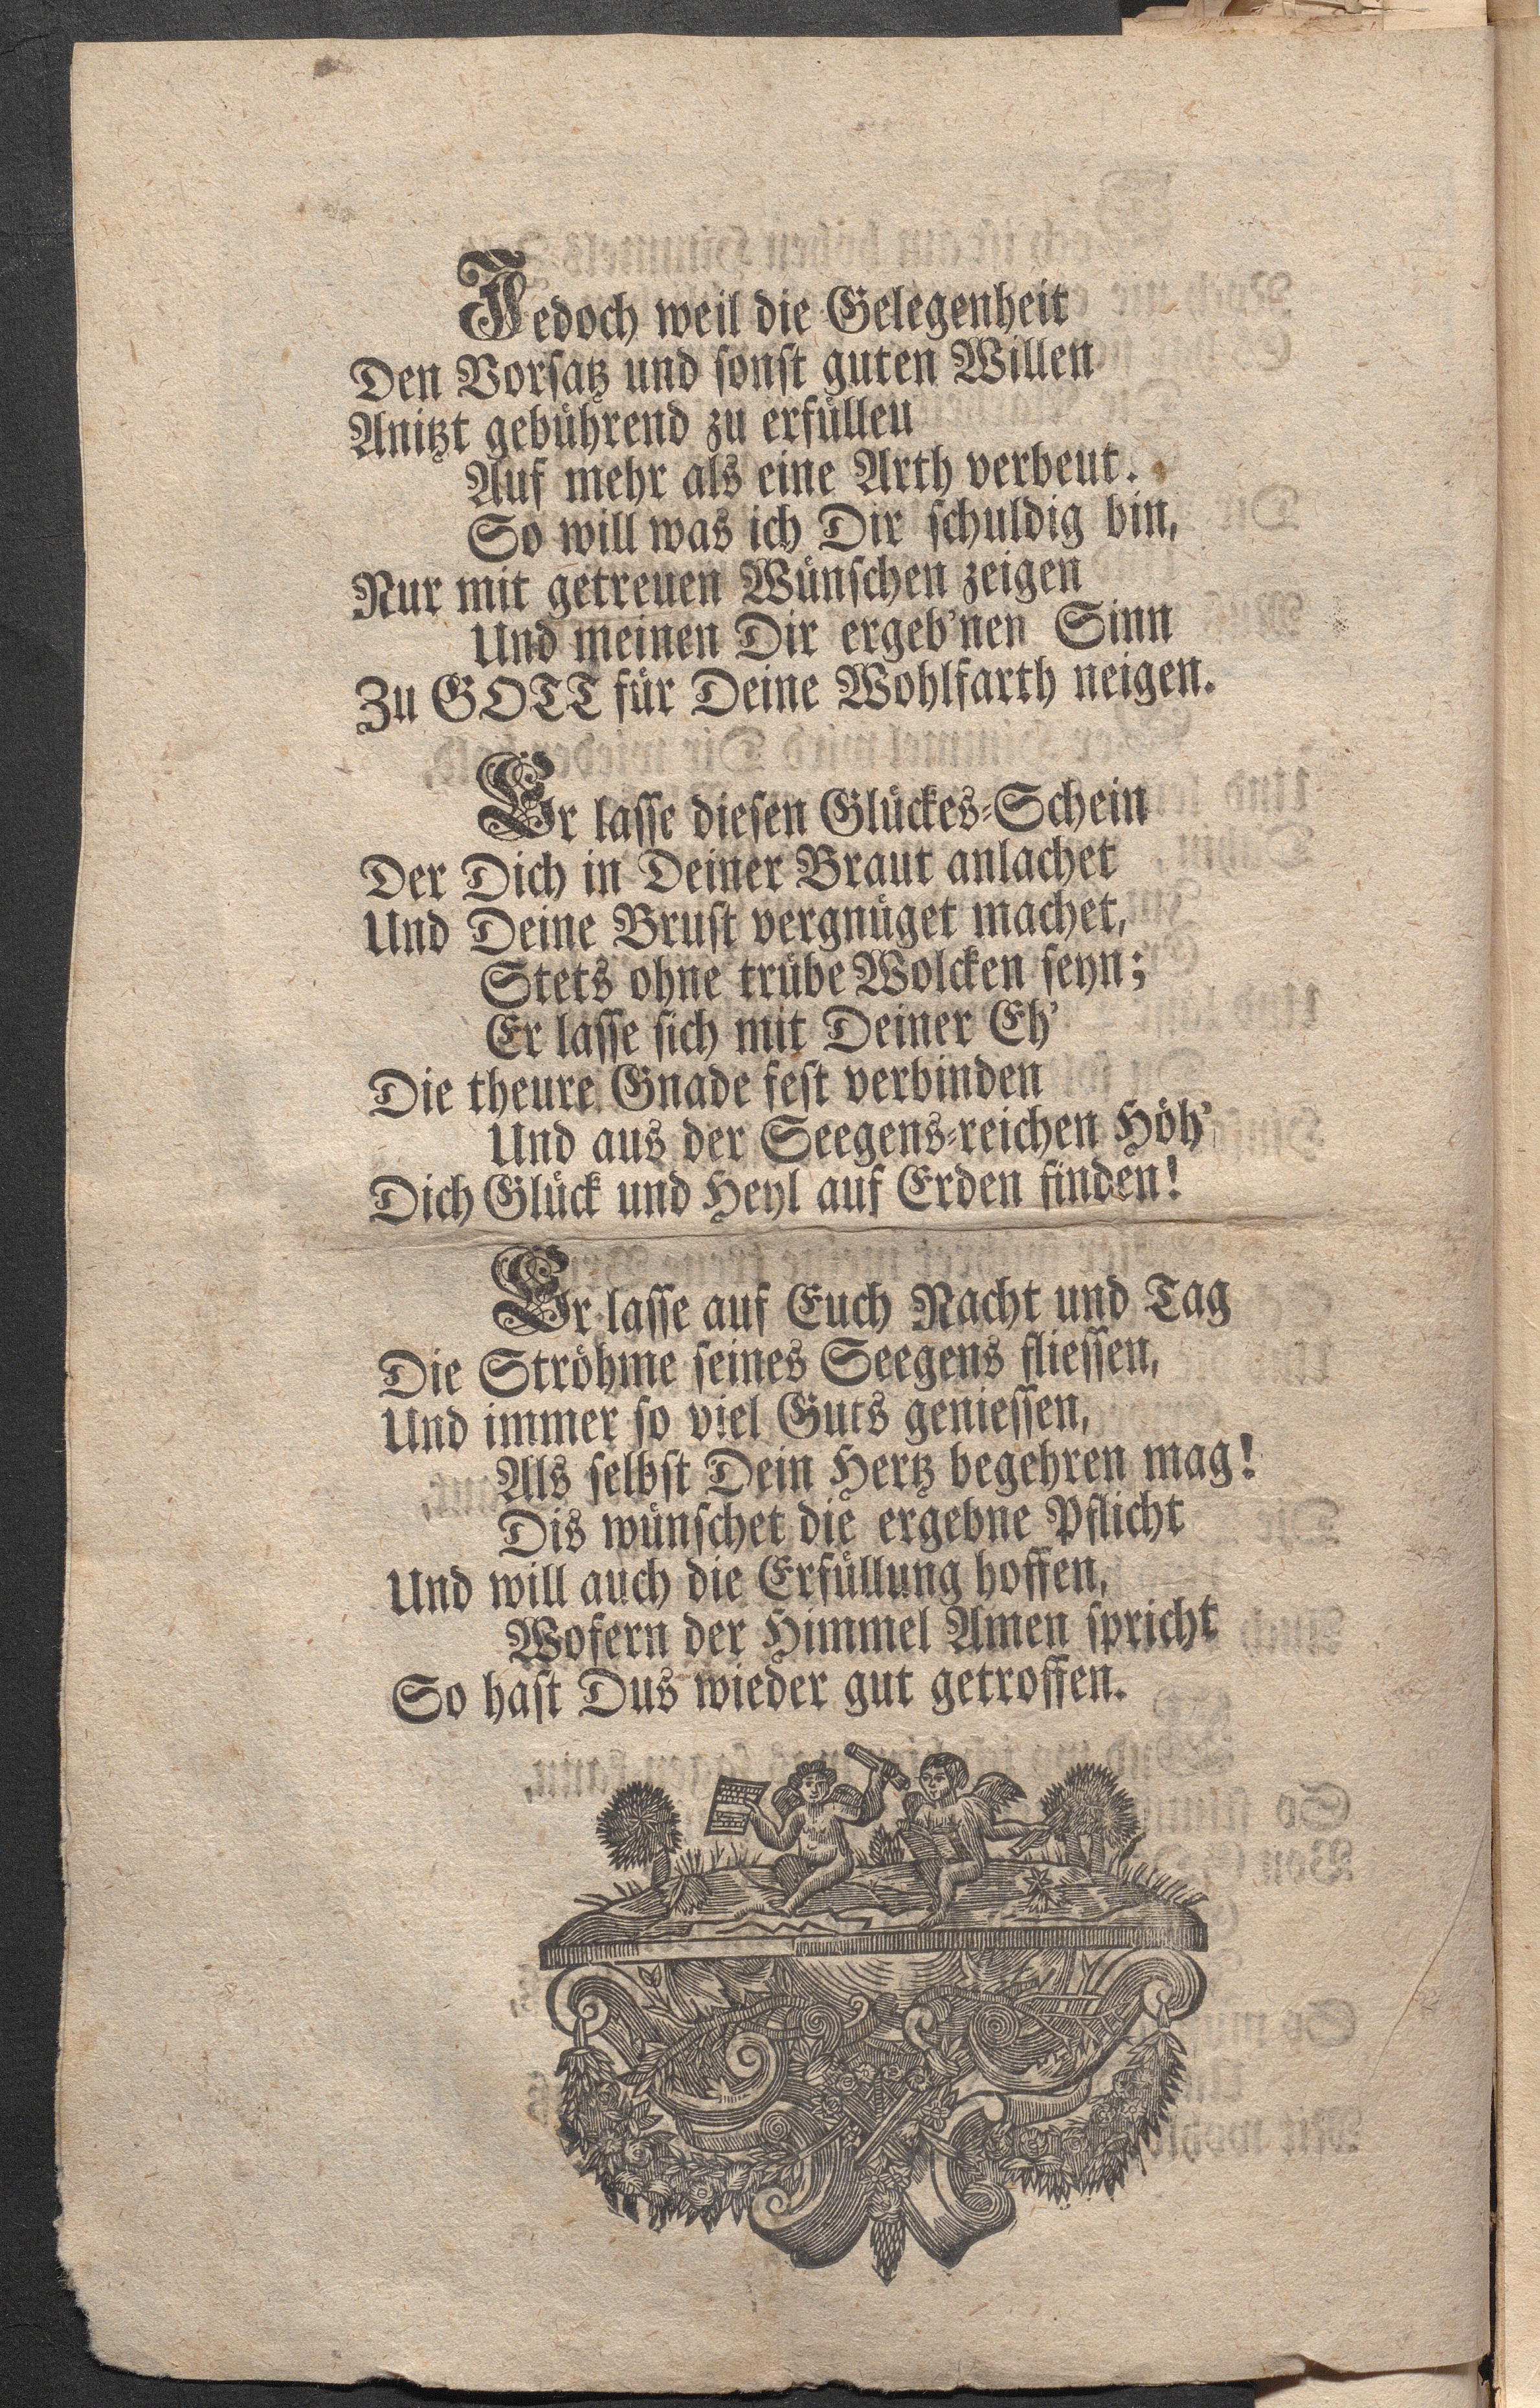 Jedoch weil die Gelegenheit
Den Vorsatz und sonst guten Willen
Anitzt gebührend zu erfüllen
Auf mehr als eine Arth verbeut.
So will was ich Dir schuldig bin,
Nur mit getreuen Wünschen zeigen
Und meinen Dir ergeb'nen Sinn
Zu GOTT für Deine Wohlfarth neigen.
Er lasse diesen Glückes-Schein
Der Dich in Deiner Braut anlachet
Und Deine Brust vergnüget machet,
Stets ohne trübe Wolcken seyn;
Er lasse sich mit Deiner Eh'
Die theure Gnade fest verbinden
Und aus der Seegens-reichen Höh'
Dich Glück und Heyl auf Erden finden!
Er lasse auf Euch Nacht und Tag
Die Ströhme seines Seegens fliessen,
Und immer so viel Guts geniessen,
Als selbst Dein Hertz begehren mag!
Dis wünschet die ergebne Pflicht
Und will auch die Erfüllung hoffen,
Wofern der Himmel Amen spricht
So hast Dus wieder gut getroffen.